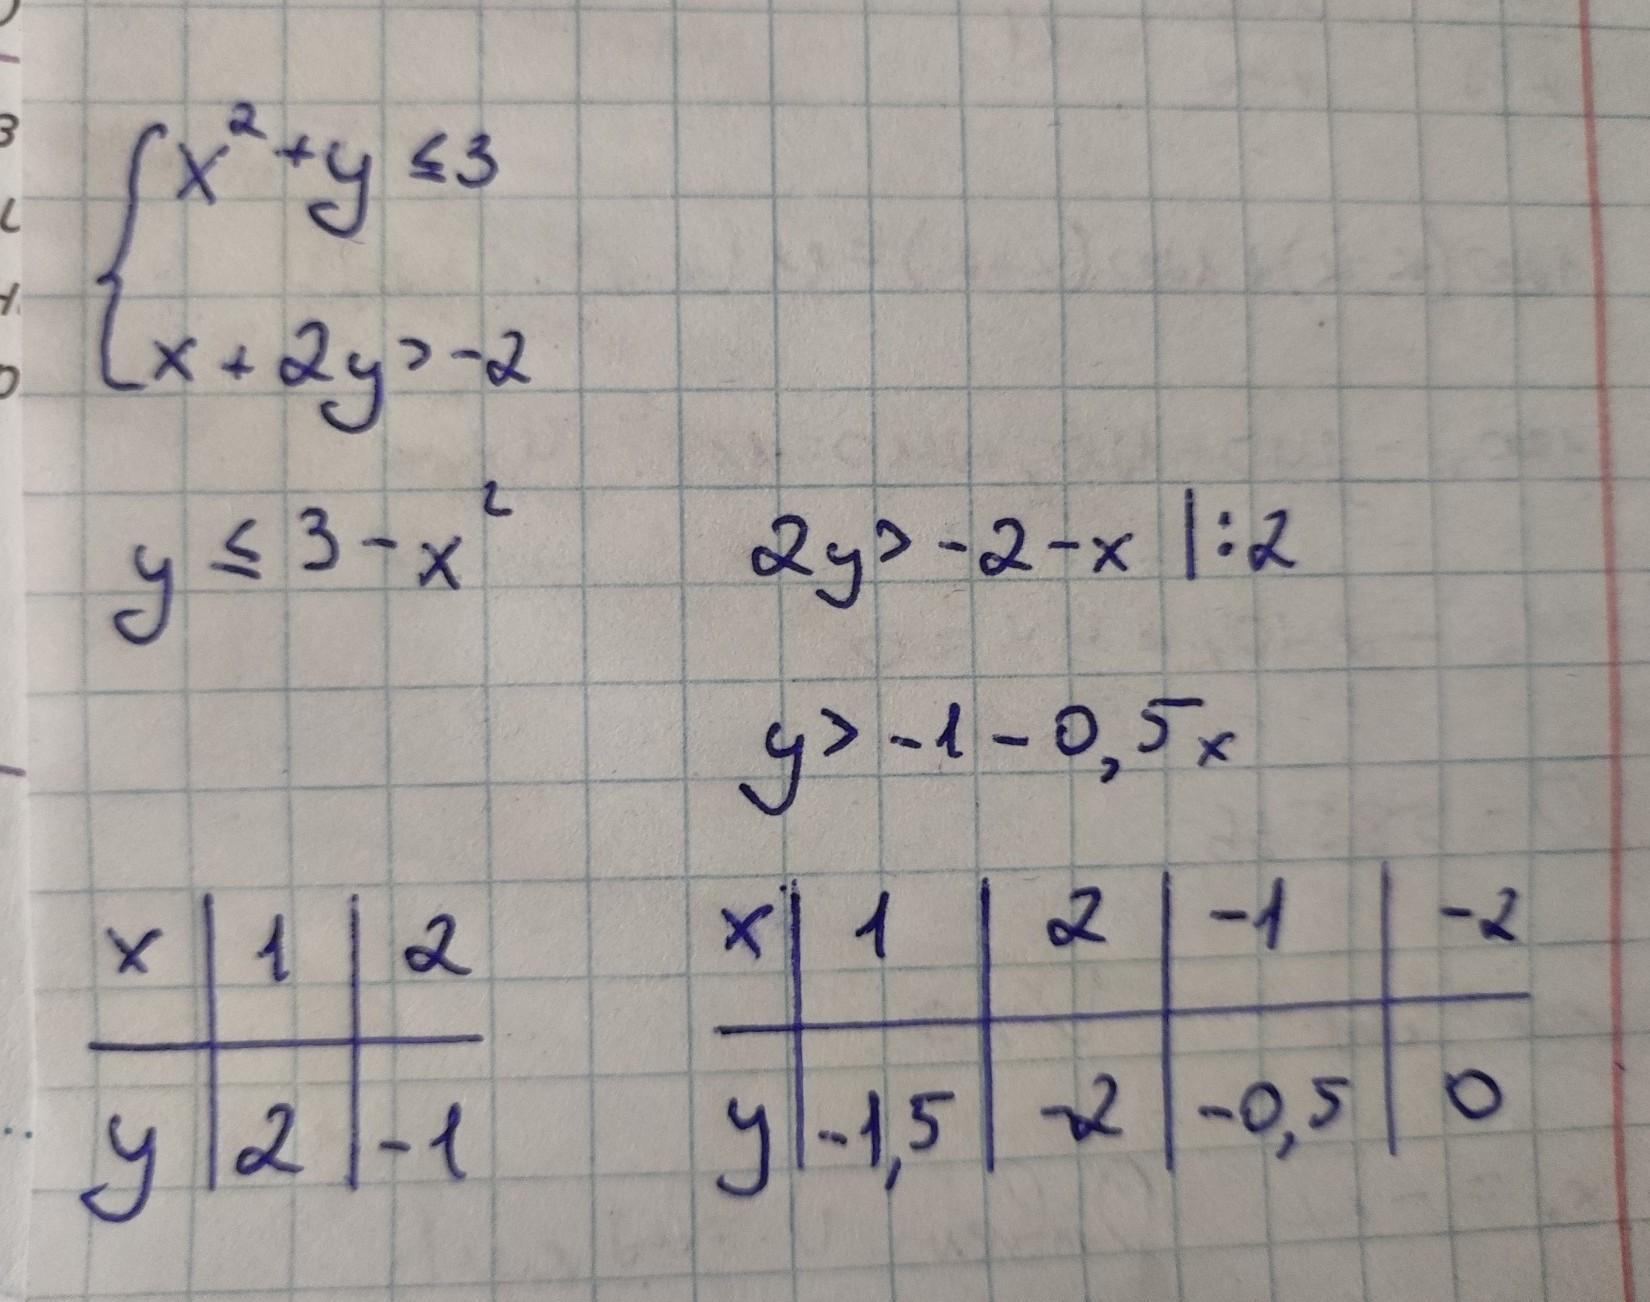 x² + y ≤ 3
x + 2y > -2
y ≤ 3 - x²
2y > -2 - x |:2
y > -1 - 0,5x
x | 1 | 2
y | 2 | -1
x | 1 | 2 | -1 | -2
y | -1,5 | -2 | -0,5 | 0